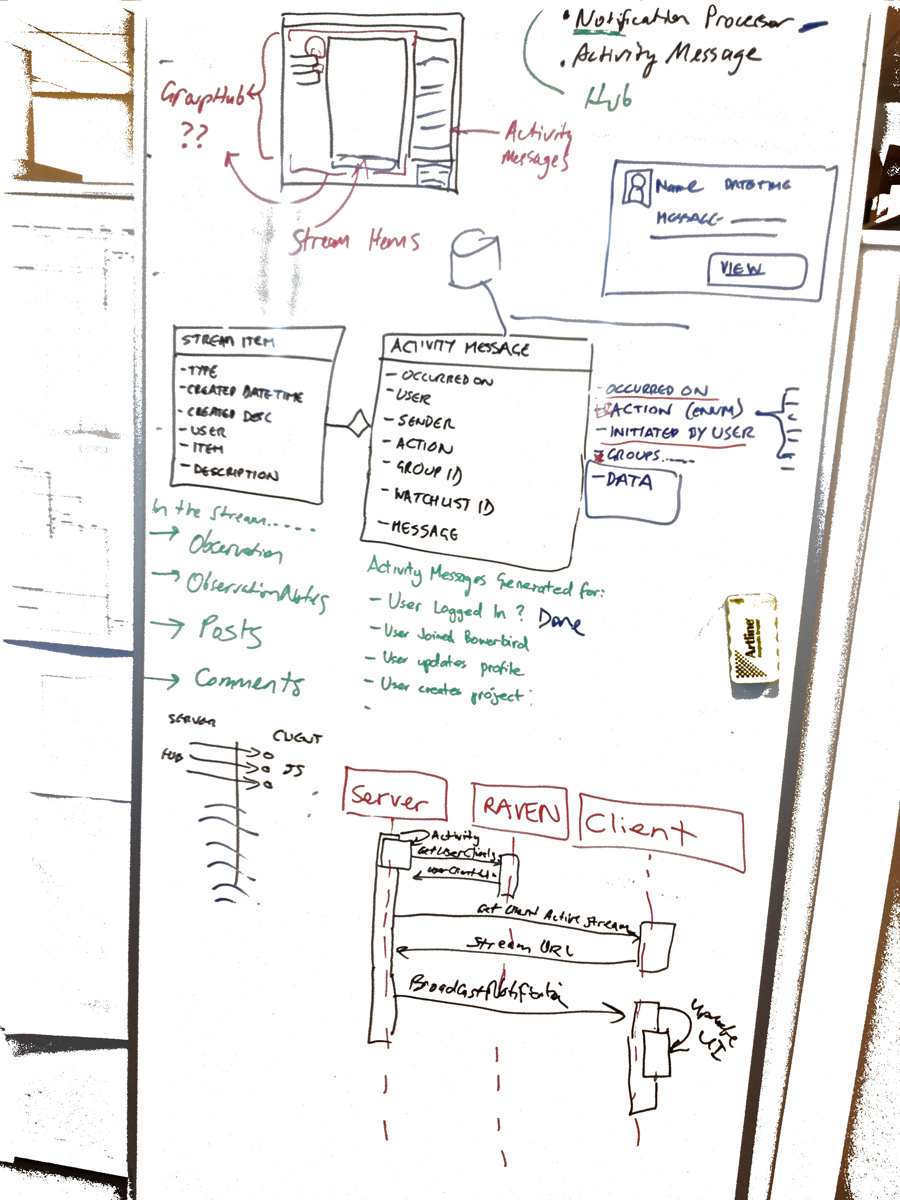 • Notification Processor
• Activity Message
Hub
GroupHub
??
Activity
Messages
Stream Items
Name DATETIME
MESSAGE
VIEW
STREAM ITEM
- TYPE
- CREATED DATETIME
- CREATED DESC
- USER
- ITEM
- DESCRIPTION
ACTIVITY MESSAGE
- OCCURRED ON
- USER
- SENDER
- ACTION
- GROUP ID
- WATCHLIST ID
- MESSAGE
- OCCURRED ON
- ACTION (ENUM)
- INITIATED BY USER
- GROUPS.....
- DATA
In the stream.....
→ Observation
→ ObservationNotes
→ Posts
→ Comments
Activity Messages Generated for:
- User Logged In ? Done
- User Joined Bowerbird
- User updates profile
- User creates project
Artline
SERVER
CLIENT
HUB
JS
Server
RAVEN
Client
Activity
Get Active Stream
Stream URL
BroadcastNotification
Update
UI